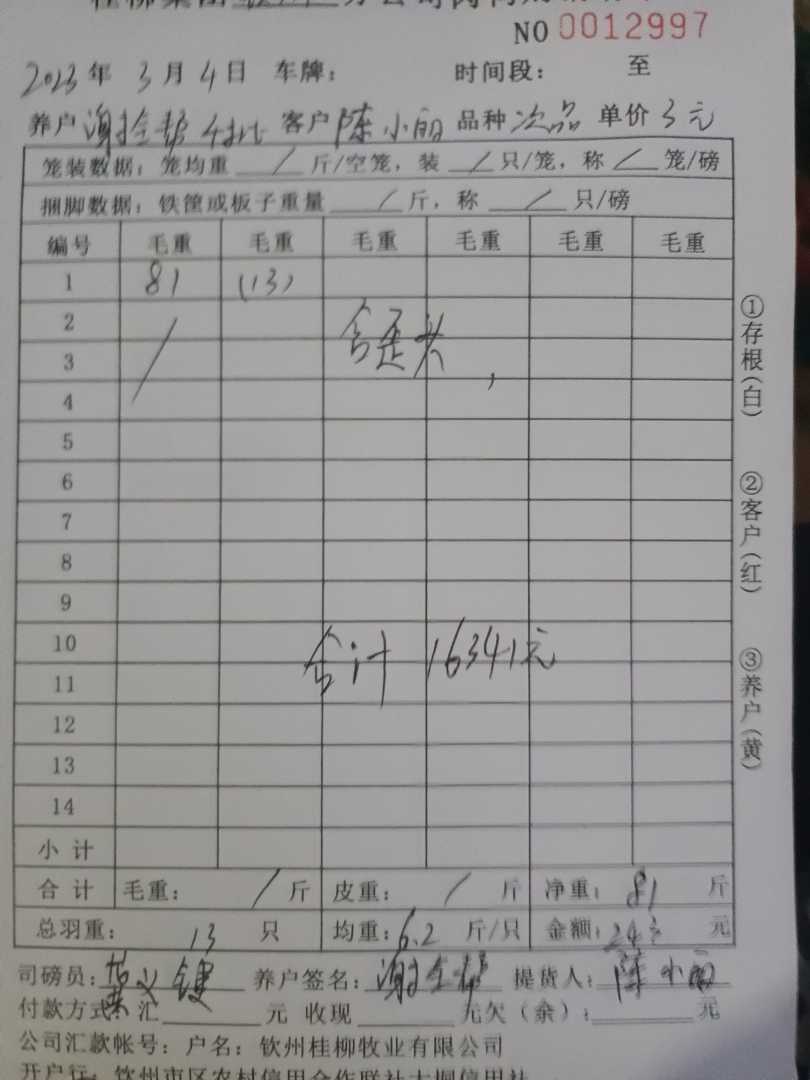 NO 0012997
2023年 3月4日 车牌： 时间段： 至
养户 谢全 客户 陈小丽 品种 次品 单价 3元
笼装数据：笼均重 / 斤/空笼，装 / 只/笼，称 / 笼/磅
捆脚数据：铁筐或板子重量 / 斤，称 / 只/磅
编号 毛重 毛重 毛重 毛重 毛重 毛重
1 81 (13)
2
含歪头
3
4
5
6
7
8
9
10
合计 16341元
11
12
13
14
小计
合计 毛重： / 斤 皮重： / 斤 净重： 81 斤
总羽重： 13 只 均重：6.2 斤/只 金额：243 元
司磅员： 养户签名：谢全 提货人：陈小丽
付款方式：汇 元 收现 元欠（余）： 元
公司汇款帐号：户名：钦州桂柳牧业有限公司
开户行：钦州市区农村信用合作联社大垌信用社
①存根(白)
②客户(红)
③养户(黄)